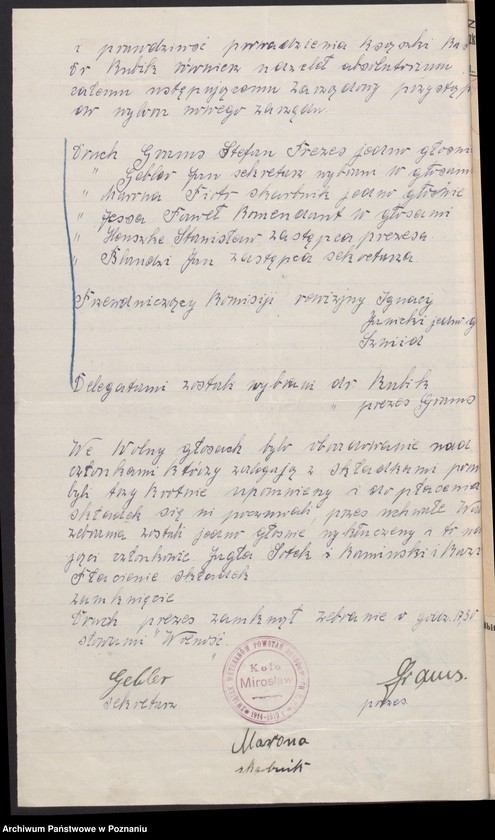 i prawdziwość prowadzenia książki Kas
Dr Kubik również udzielał absolutorium
całemu ustępującemu zarządowy przystąp
do wyboru nowego zarządu.
Druch Grams Stefan Prezes jedno głosn
" Gebler Jan sekretarz wybrani w głosami
" Marona Piotr skarbnik jedno głośnie
" Jessa Paweł Komendant w głosami
" Henszke Stanisław zastępca prezesa
" Blandzi Jan zastępca sekretarza
Przewdniczący Komisiji rewizyjny Ignacy
Janicki jedno g
Szmid
Delegatami zostali wybrani dr Kubik
" prezes Grams
We Wolny głosach było obradowanie nad
członkami którzy zalegają z składkami
byli trzy krotnie upomnieny i do płacenia
składek się ni poczuwali, przes uchwałe
zebrania zostali jedno głośnie wykluczeny
jąci członkowie Jagła Sotek i Kaminski i Kazi
Płacienie składek
zamknięcie
Druch prezes zamknął zebranie o godz. 17,30
słowami "Wolność."
Gebler
sekretarz
Grams.
prezes
Koło
Mirosław
1914-1919
Marona
skarbnik
Archiwum Państwowe w Poznaniu